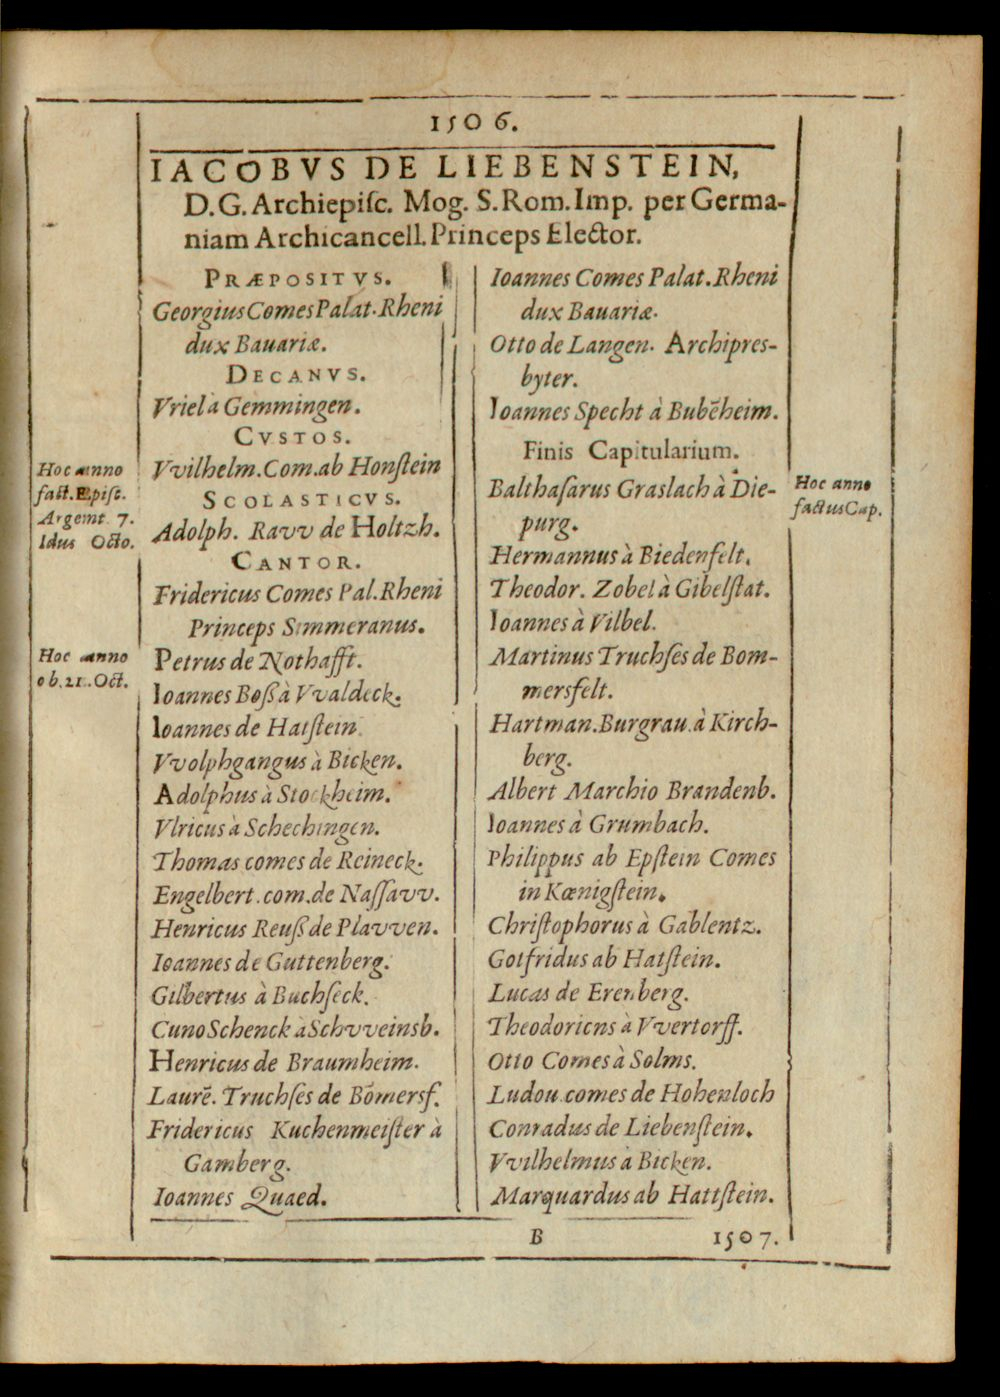 1506.
IACOBVS DE LIEBENSTEIN,
D.G. Archiepiſc. Mog. S. Rom. Imp. per Germa-
niam Archicancell. Princeps Elector.
PRÆPOSITVS.
Georgius Comes Palat. Rheni
dux Bauariæ.
DECANVS.
Vriel à Gemmingen.
CVSTOS.
Hoc anno
fact. Epiſc.
Argemt. 7.
Idus Octo.
Vvilhelm. Com. ab Honſtein
SCOLASTICVS.
Adolph. Ravv de Holtzh.
CANTOR.
Fridericus Comes Pal. Rheni
Princeps Simmeranus.
Hoc anno
ob. 21. Oct.
Petrus de Nothafft.
Ioannes Boß à Vvaldeck.
Ioannes de Hatſtein.
Vvolphgangus à Bicken.
Adolphus à Stockheim.
Vlricus à Schechingen.
Thomas comes de Reineck.
Engelbert. com. de Naſſavv.
Henricus Reuß de Plavven.
Ioannes de Guttenberg.
Gilbertus à Buchſeck.
Cuno Schenck à Schvveinsb.
Henricus de Braumheim.
Laurē. Truchſes de Bōmersf.
Fridericus Kuchenmeiſter à
Gamberg.
Ioannes Quaed.
Ioannes Comes Palat. Rheni
dux Bauariæ.
Otto de Langen. Archipres-
byter.
Ioannes Specht à Bubēheim.
Finis Capitularium.
Balthaſarus Graslach à Die-
purg.
Hoc anno
factus Cap.
Hermannus à Biedenfelt.
Theodor. Zobel à Gibelſtat.
Ioannes à Vilbel.
Martinus Truchſes de Bom-
mersfelt.
Hartman. Burgrau. à Kirch-
berg.
Albert Marchio Brandenb.
Ioannes à Grumbach.
Philippus ab Epſtein Comes
in Kœnigſtein.
Chriſtophorus à Gablentz.
Gotfridus ab Hatſtein.
Lucas de Erenberg.
Theodoricns à Vvertorff.
Otto Comes à Solms.
Ludou. comes de Hohenloch
Conradus de Liebenſtein.
Vvilhelmus à Bicken.
Marquardus ab Hattſtein.
B
1507.